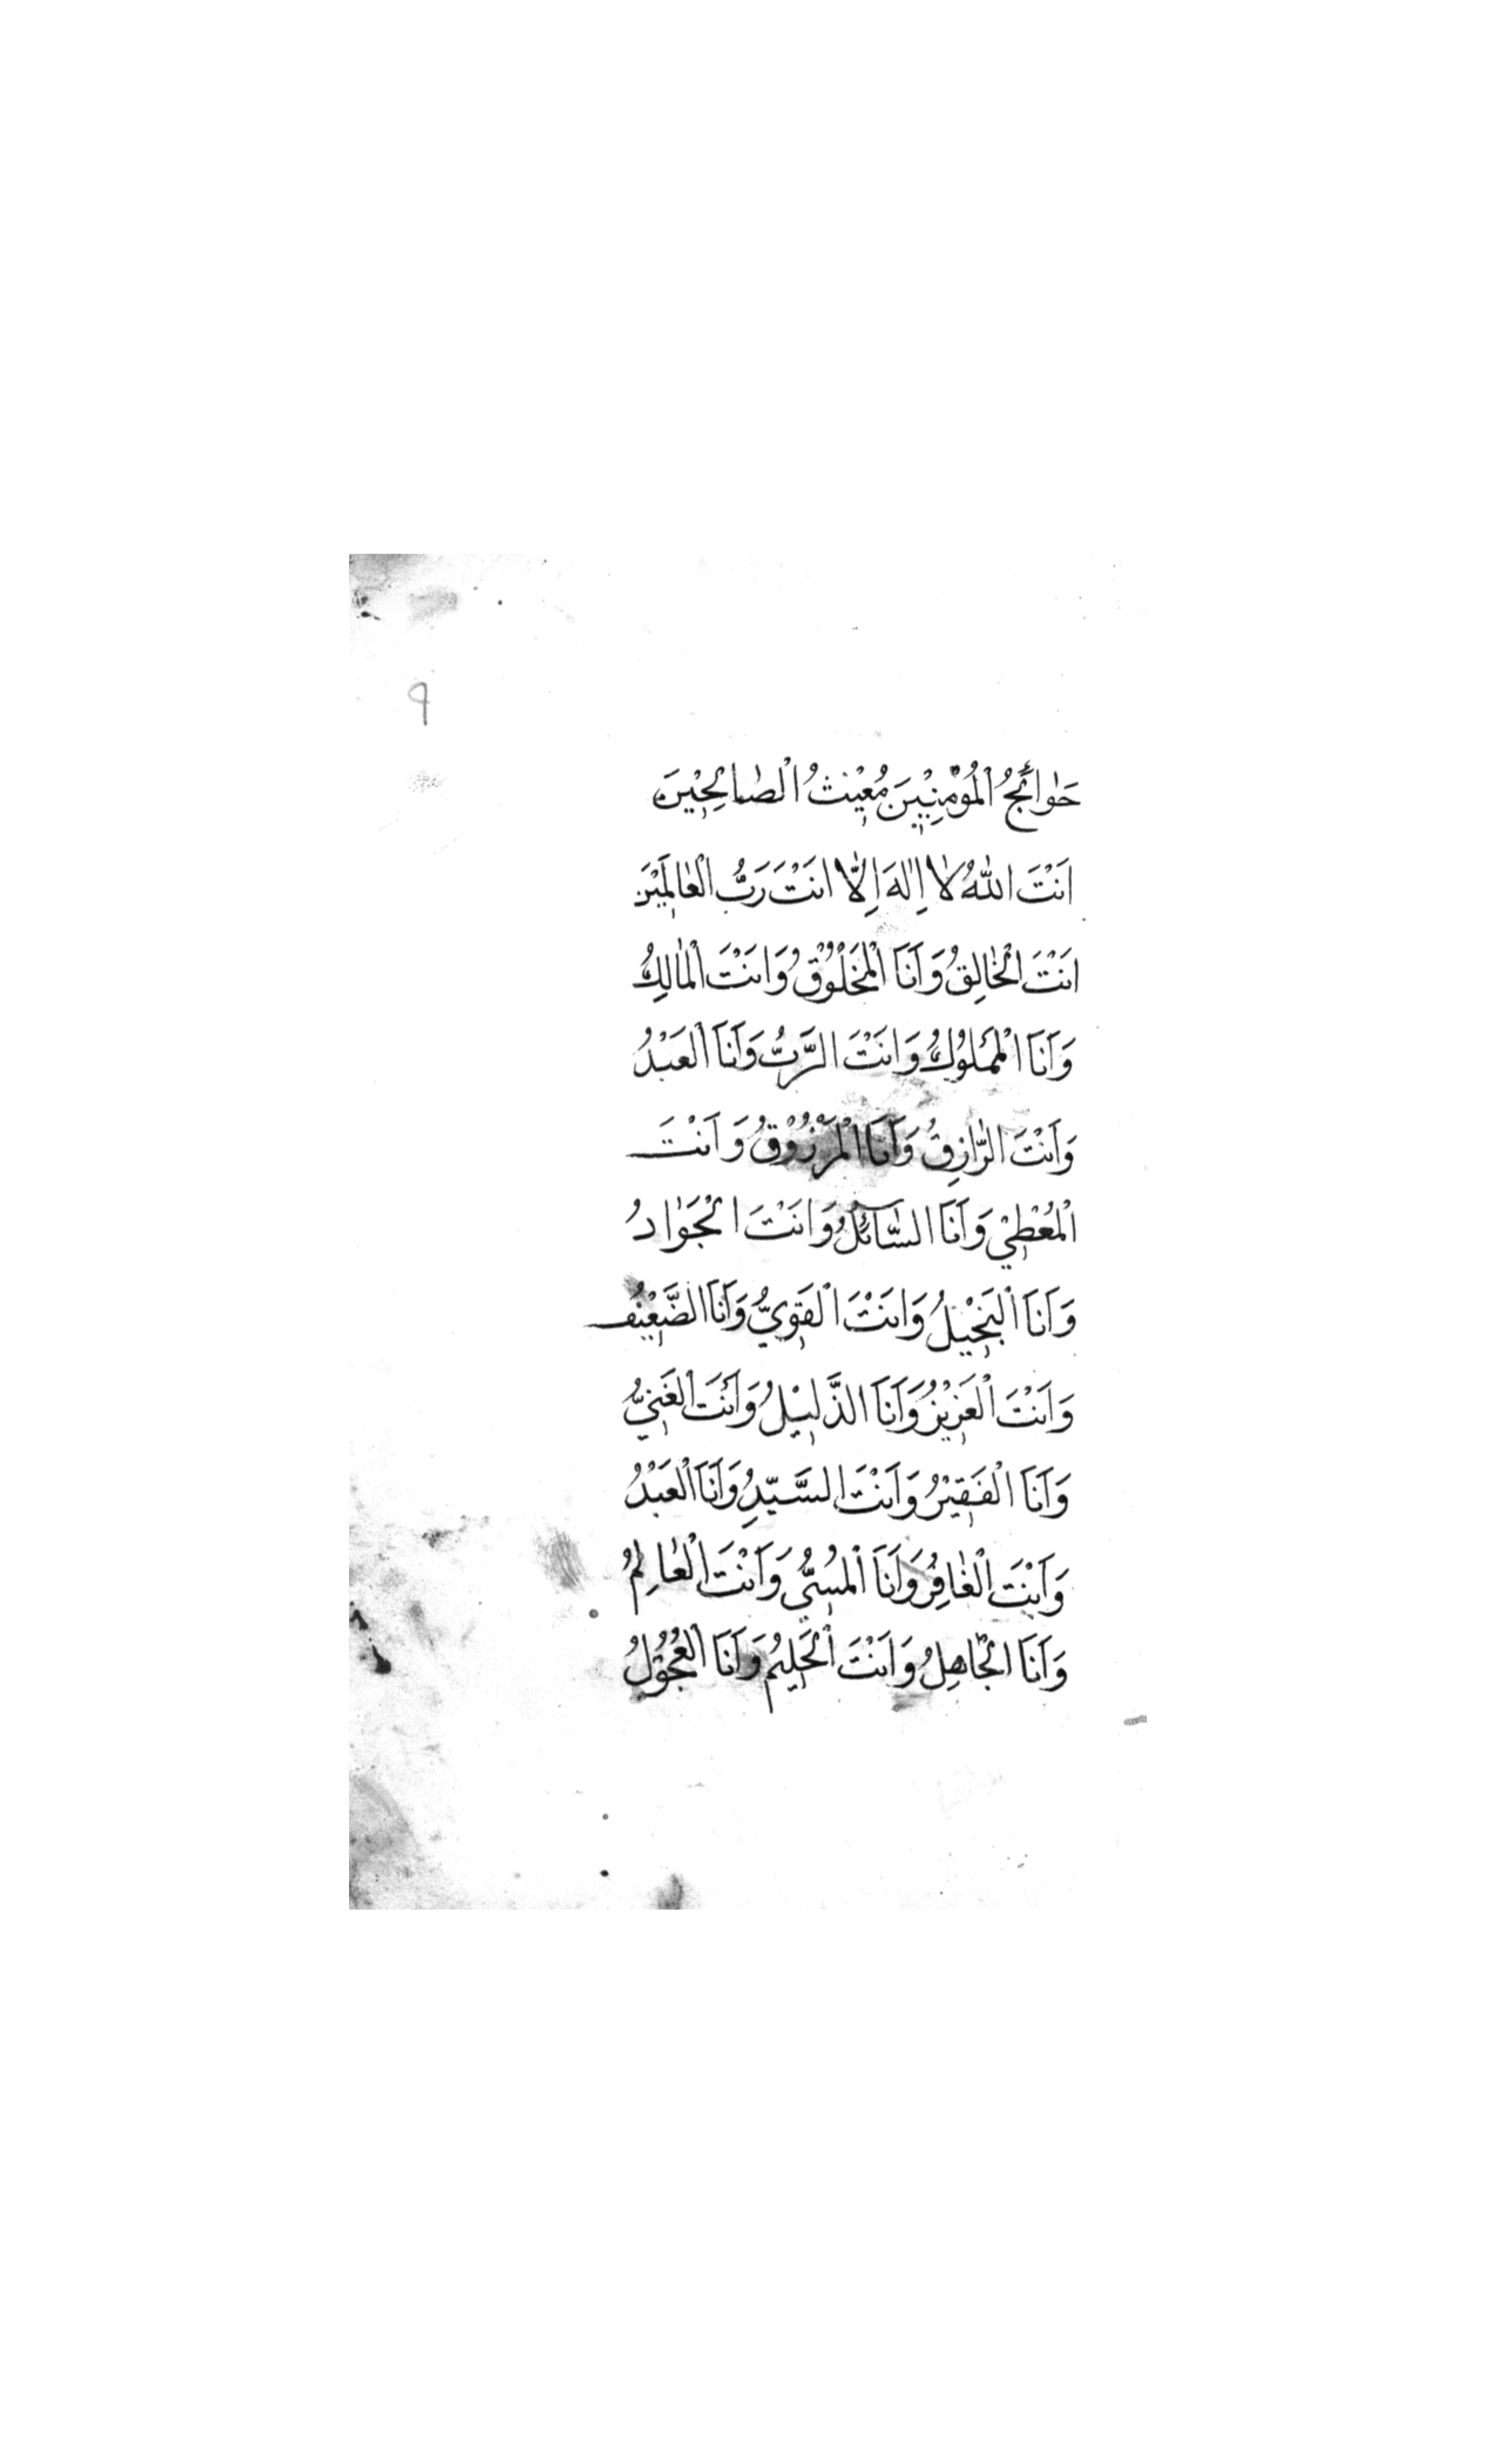 ٩
حَوٰائِجُ الْمُؤْمِنِيْنَ مُعِيْنُ الْصّٰالِحِيْنَ
اَنْتَ اللّٰهُ لٰا اِلٰهَ اِلّٰا اَنْتَ رَبُّ الْعٰالَمِيْنَ
اَنْتَ الْخٰالِقُ وَاَنَا الْمَخْلُوْقُ وَاَنْتَ الْمٰالِكُ
وَاَنَا الْمَمْلُوْكُ وَاَنْتَ الرَّبُّ وَاَنَا الْعَبْدُ
وَاَنْتَ الرّٰازِقُ وَاَنَا الْمَرْزُوْقُ وَاَنْتَ
الْمُعْطِيْ وَاَنَا السّٰائِلُ وَاَنْتَ الْجَوٰادُ
وَاَنَا الْبَخِيْلُ وَاَنْتَ الْقَوِيُّ وَاَنَا الضَّعِيْفُ
وَاَنْتَ الْعَزِيْزُ وَاَنَا الذَّلِيْلُ وَاَنْتَ الْغَنِيُّ
وَاَنَا الْفَقِيْرُ وَاَنْتَ السَّيِّدُ وَاَنَا الْعَبْدُ
وَاَنْتَ الْغٰافِرُ وَاَنَا الْمُسِئُّ وَاَنْتَ الْعٰالِمُ
وَاَنَا الْجٰاهِلُ وَاَنْتَ الْحَلِيْمُ وَاَنَا الْعَجُوْلُ